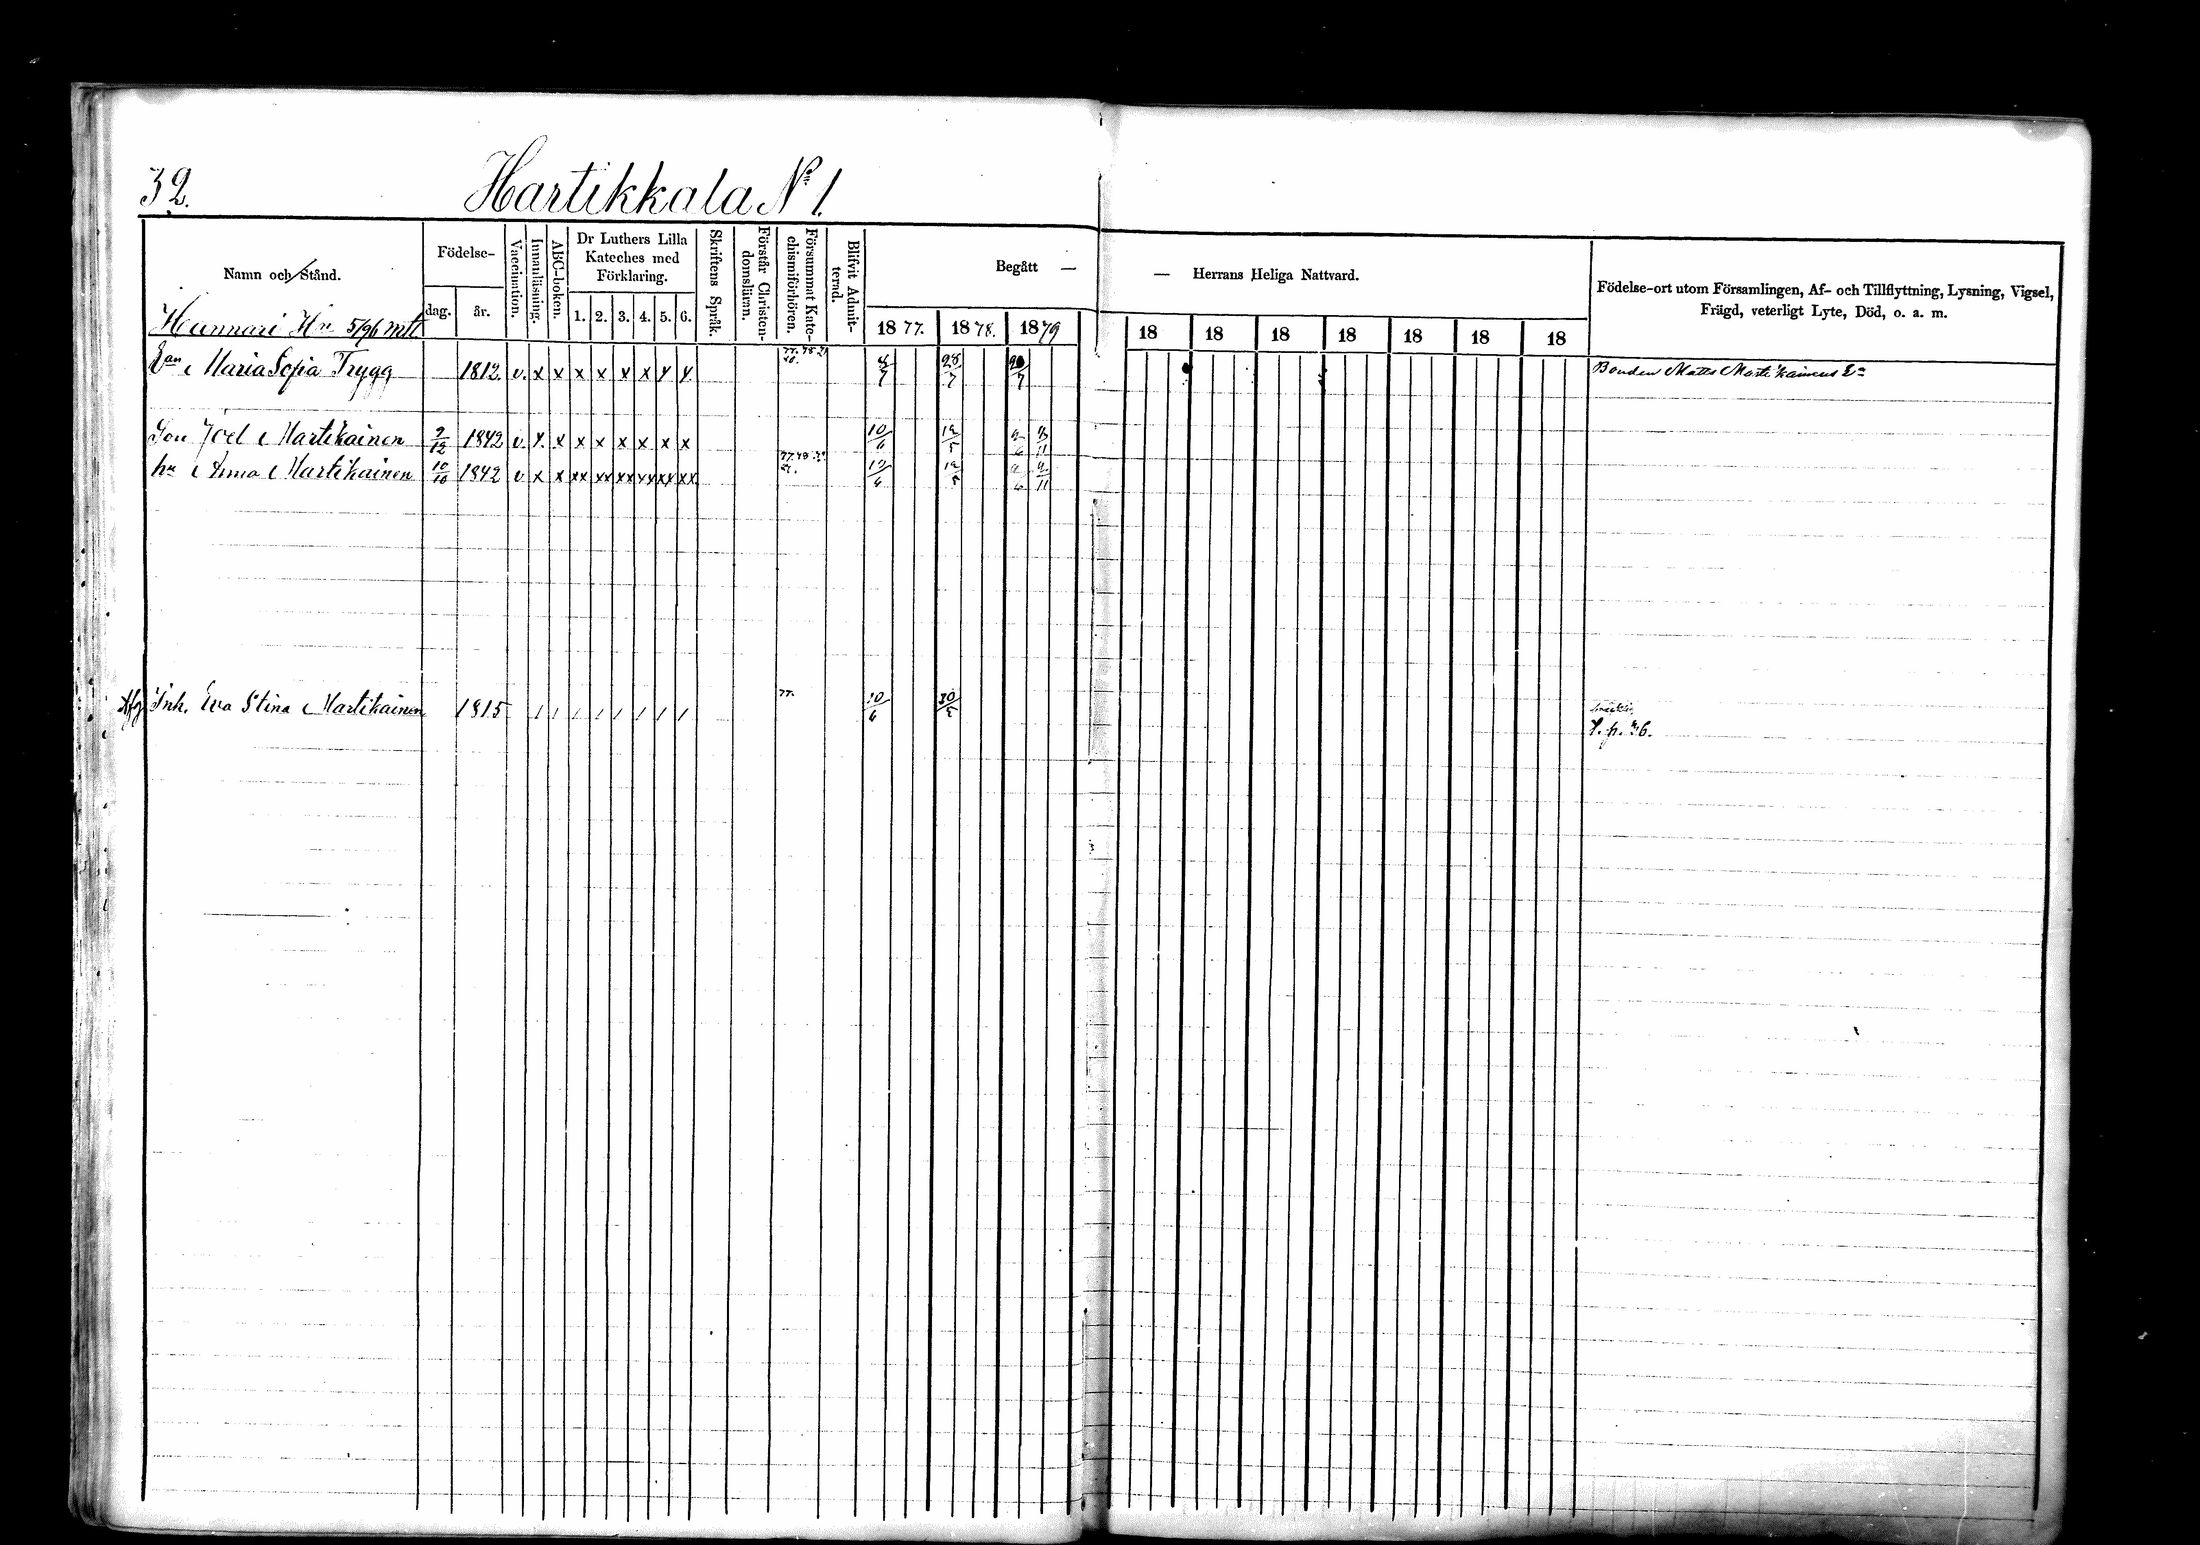 32.
Hartikkala No 1.
Namn och Stånd.
Födelse-
dag.
år.
Vaccination.
Innanläsning.
ABC-boken.
Dr Luthers Lilla
Kateches med
Förklaring.
1. 2. 3. 4. 5. 6.
Skriftens Språk.
Förstår Christen-
domsläran.
Försummat Kate-
chismiförhören.
Blifvit Admit-
terad.
Begått —
— Herrans Heliga Nattvard.
1877. 1878. 1879
18 18 18 18 18 18 18
Födelse-ort utom Församlingen, Af- och Tillflyttning, Lysning, Vigsel,
Frägd, veterligt Lyte, Död, o. a. m.
Hannari Hn 5/96 mtl.
Ean Maria Sofia Trygg 1812. v. x x x x x x x x 28/7 Bonden Matts Martikainens Ea
Son Joel Martikainen 9/12 1842 v. x x x x x x x x 10/6 12/5
hu Anna Martikainen 10/10 1842 v x x xx xx xx xx xx xx 12/5
Inh. Eva Stina Martikainen 1815 / / / / / / / / 77. 10/6